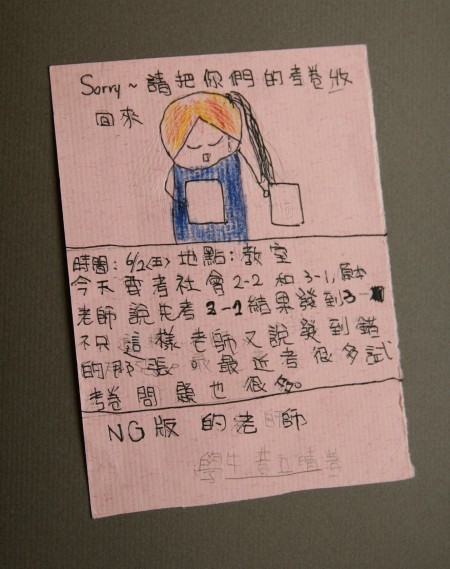 Sorry~請把你們的考卷收
回來
時間：6/2(五) 地點：教室
今天要考社會2-2 和3-1,原本
老師說先考 2-1結果發到3-
不只 這樣老師又說發到錯
的那張 最近考很多試
考卷問題也很多。
NG版 的老師
學生